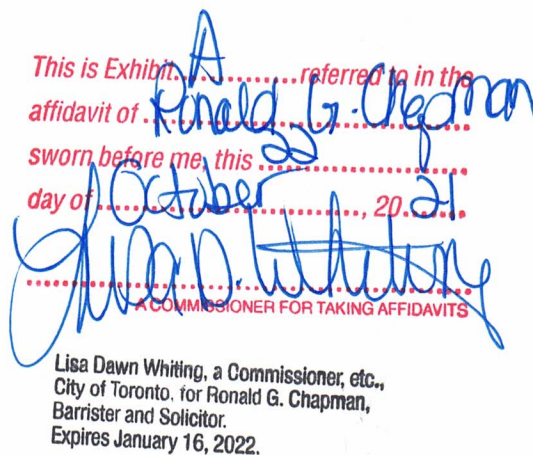 This is Exhibit A referred to in the
affidavit of Ronald G. Chapman
sworn before me, this 22
day of October, 2021
Lisa D. Whiting
A COMMISSIONER FOR TAKING AFFIDAVITS
Lisa Dawn Whiting, a Commissioner, etc.,
City of Toronto, for Ronald G. Chapman,
Barrister and Solicitor.
Expires January 16, 2022.